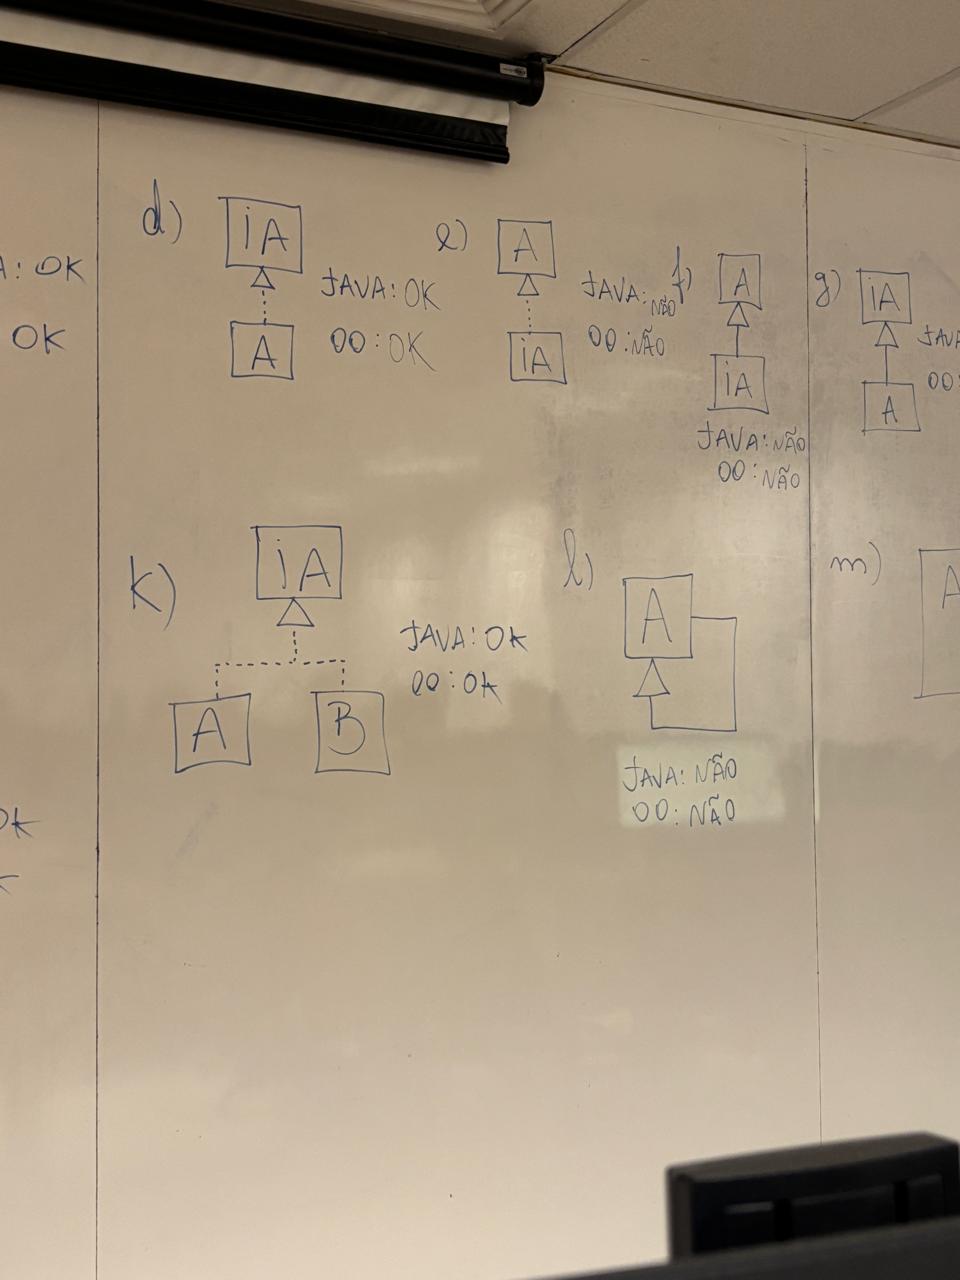 A: OK
OK
d)
iA
A
JAVA: OK
OO: OK
e)
A
iA
JAVA: NÃO
OO: NÃO
f)
A
iA
JAVA: NÃO
OO: NÃO
g)
iA
A
JAVA
OO:
k)
iA
A
B
JAVA: OK
OO: OK
l)
A
JAVA: NÃO
OO: NÃO
m)
A
OK